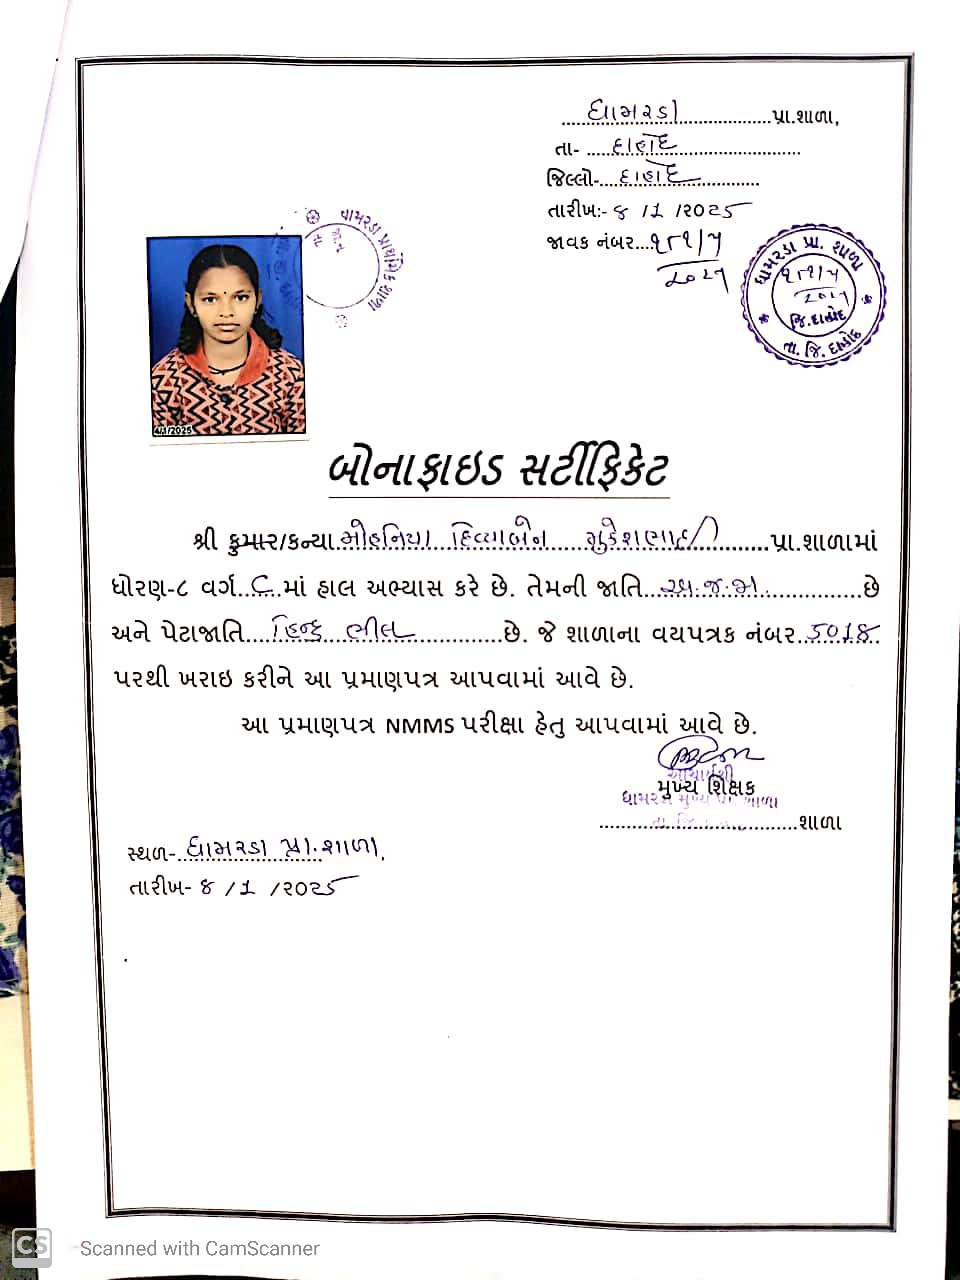 ધામરડા પ્રા.શાળા,
તા- દાહોદ
જિલ્લો- દાહોદ
તારીખ:- 8 /1 /૨૦૨5
જાવક નંબર...
૨૦૨૫
ધામરડા પ્રા. શાળા
૨૦૨૫
જિ.દાહોદ
તા. જિ. દાહોદ
4/1/2025
બોનાફાઇડ સર્ટીફિકેટ
શ્રી કુમાર/કન્યા મોહનિયા દિવ્યાબેન મુકેશભાઈ પ્રા.શાળામાં
ધોરણ-૮ વર્ગ C માં હાલ અભ્યાસ કરે છે. તેમની જાતિ અ.જ.જા. છે
અને પેટાજાતિ હિન્દુ ભીલ છે. જે શાળાના વયપત્રક નંબર 5018
પરથી ખરાઇ કરીને આ પ્રમાણપત્ર આપવામાં આવે છે.
આ પ્રમાણપત્ર NMMS પરીક્ષા હેતુ આપવામાં આવે છે.
આચાર્યશ્રી
મુખ્ય શિક્ષક
શાળા
સ્થળ- ધામરડા પ્રા.શાળા.
તારીખ- 8 /1 /૨૦૨5
CS Scanned with CamScanner